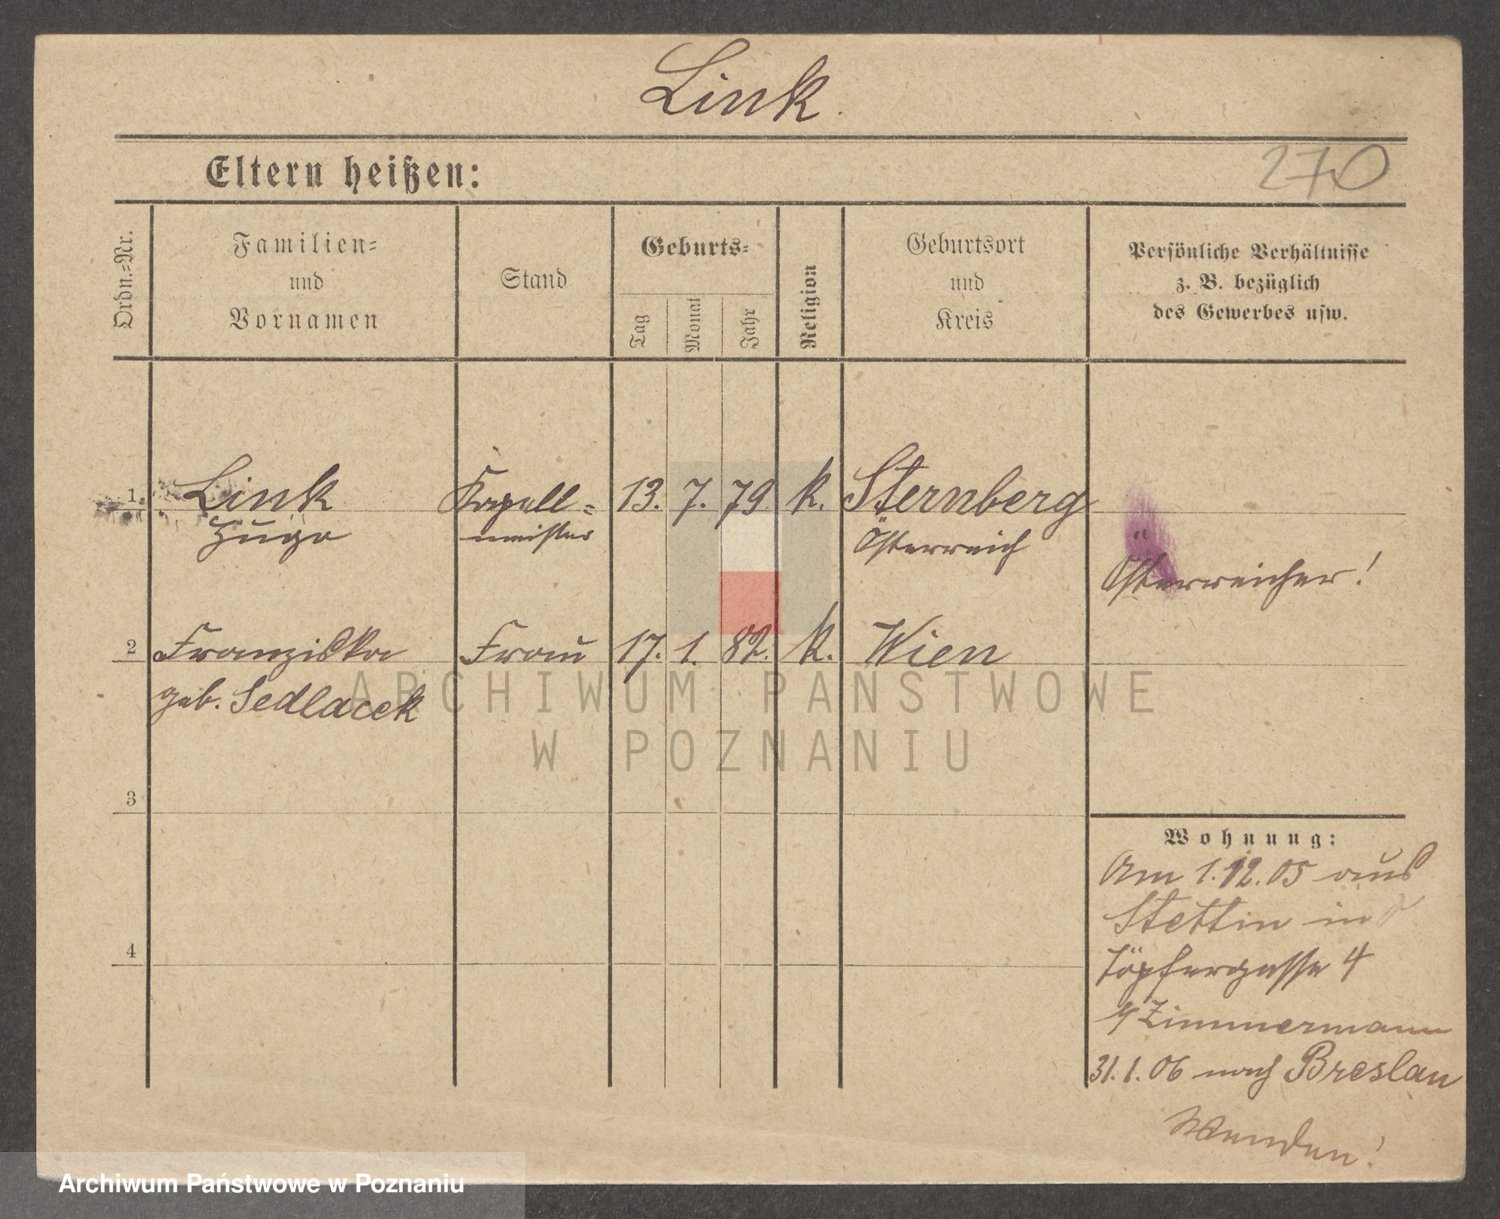 Link.
Eltern heißen:
270
Ordn.=Nr.
Familien=
und
Vornamen
Stand
Geburts=
Tag
Monat
Jahr
Religion
Geburtsort
und
Kreis
Persönliche Verhältnisse
z. B. bezüglich
des Gewerbes usw.
1 Link Kapell= 13. 7. 79 k. Sternberg
Hugo meister Österreich
Österreicher!
2 Franziska Frau 17. 1. 82. k. Wien
geb. Sedlacek
ARCHIWUM PAŃSTWOWE
W POZNANIU
3
Wohnung:
Am 1.12.05 aus
Stettin in
4
Töpfergasse 4
Zimmermann
31.1.06 nach Breslau
Wenden!
Archiwum Państwowe w Poznaniu